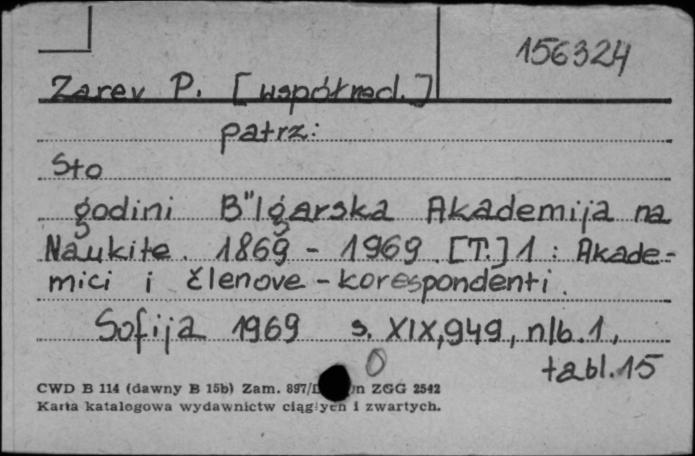 156324
Zarev P. [współred.]
patrz:
Sto
godini B"lgarska Akademija na
Naukite. 1869 - 1969. [T.] 1 : Akade-
mici i členove - korespondenti.
Sofija 1969 s. XIX, 949, nlb. 1,
tabl. 15
CWD B 114 (dawny B 15b) Zam. 897/ ZGG 2542
Karta katalogowa wydawnictw ciągłych i zwartych.